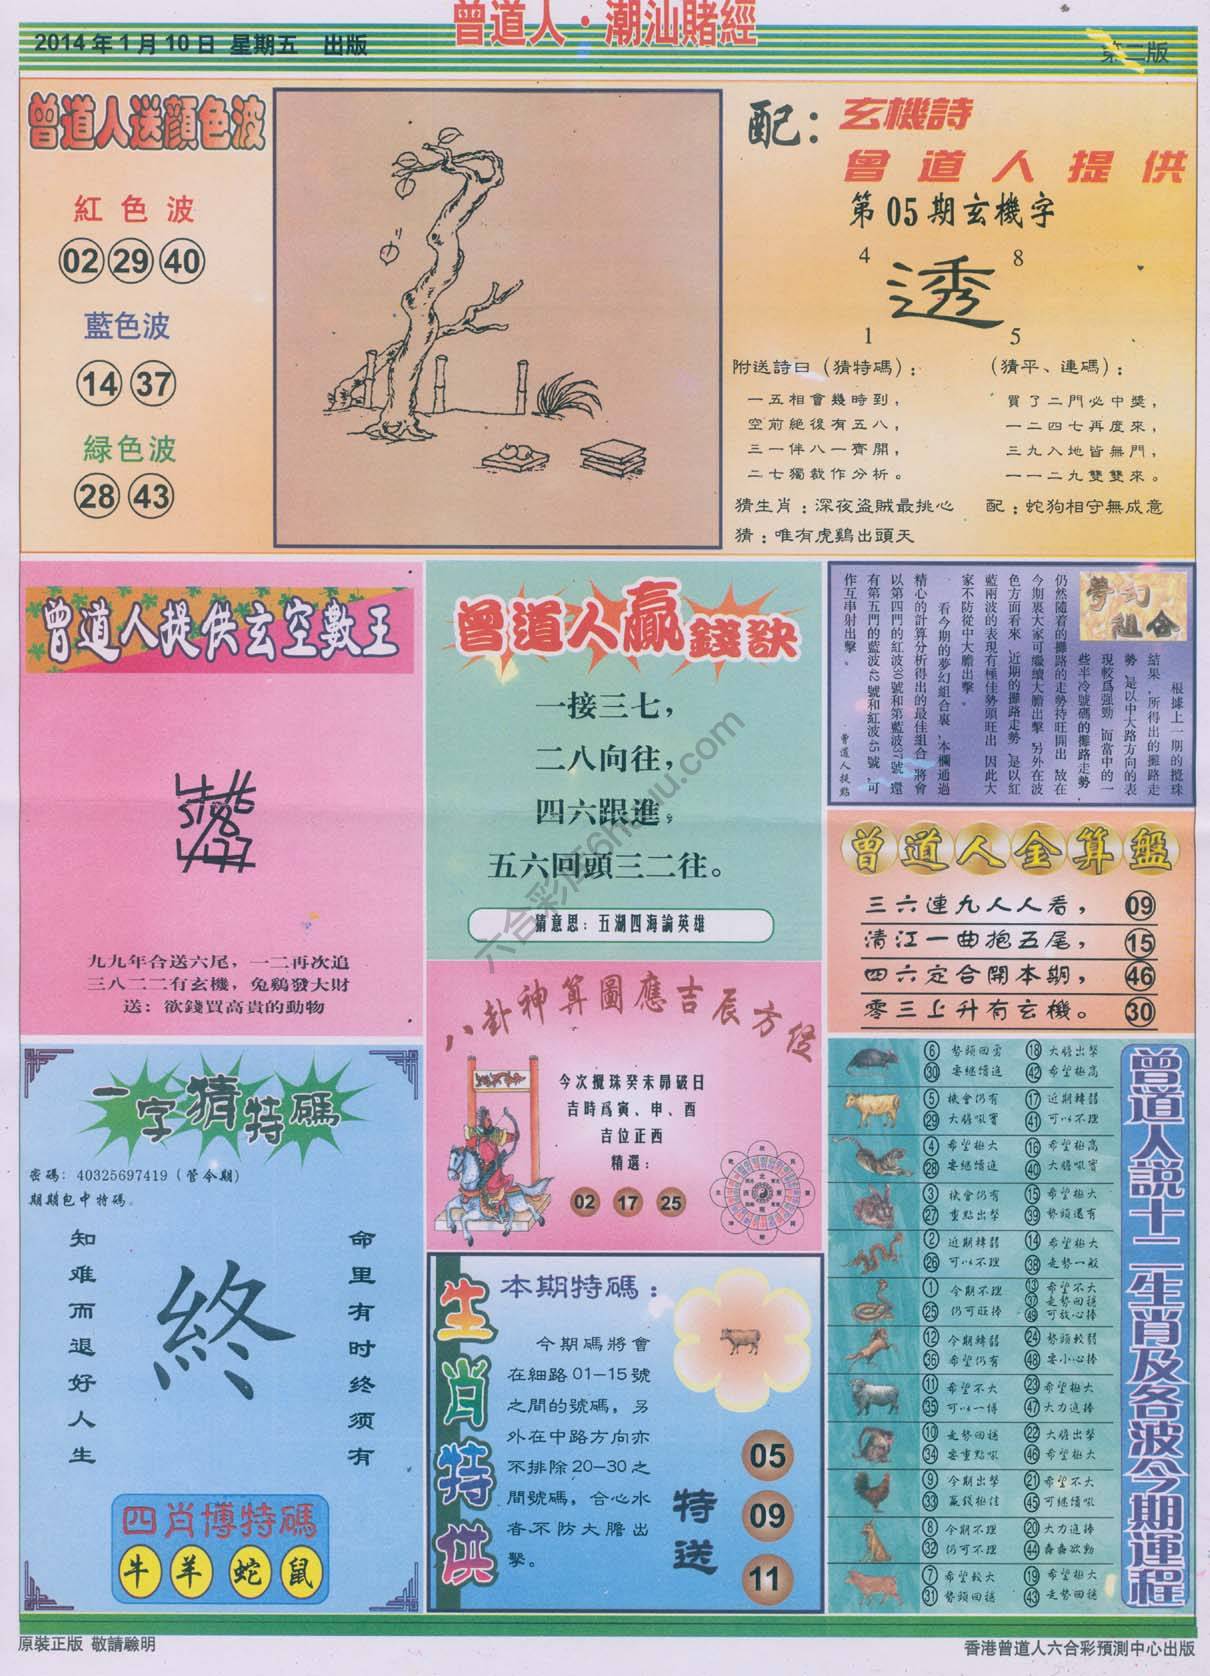 曾道人·潮汕賭經
2014年1月10日 星期五 出版
第二版
曾道人送顏色波
紅色波
02 29 40
藍色波
14 37
緑色波
28 43
配：玄機詩
曾道人提供
第05期玄機字
4 8
透
1 5
附送詩曰（猜特碼）：
一五相會幾時到，
空前絕後有五八，
三一伴八一齊開，
二七獨裁作分析。
（猜平、連碼）：
買了二門必中獎，
一二四七再度來，
三九入地皆無門，
一一二九雙雙來。
猜生肖：深夜盜賊最挑心 配：蛇狗相守無成意
猜：唯有虎鷄出頭天
曾道人提供玄空數王
九九年合送六尾，一二再次追
三八二二有玄機，兔鷄發大財
送：欲錢買高貴的動物
曾道人贏錢訣
一接三七，
二八向往，
四六跟進，
五六回頭三二往。
猜意思：五湖四海論英雄
夢幻
組合
根據上一期的攪珠
結果，所得出的攤路走
勢，是以中大路方向的表
現較爲强勁，而當中的一
些半冷號碼的攤路走勢
仍然隨着的攤路的走勢持旺開出，故在
今期裏大家可繼續大膽出擊，另外在波
色方面看來，近期的攤路走勢，是以紅
藍兩波的表現有極佳勢頭旺出，因此大
家不防從中大膽出擊。
看今期的夢幻組合裏，本欄通過
精心的計算分析得出的最佳組合，將會
以第四門的紅波30號和第藍波37號，還
有第五門的藍波42號和紅波45號，可
作互串射出擊。
曾道人提點
曾道人金算盤
三六連九人人看， 09
清江一曲抱五尾， 15
四六定合開本期， 46
零三上升有玄機。 30
八卦神算圖應吉辰方位
今次攪珠癸未昴破日
吉時爲寅、申、酉
吉位正西
精選：
02 17 25
一字猜特碼
密碼：40325697419（管令期）
期期包中特碼。
知难而退好人生
終
命里有时终须有
四肖博特碼
牛 羊 蛇 鼠
生肖特供
本期特碼：
今期碼將會
在細路01-15號
之間的號碼，另
外在中路方向亦
不排除20-30之
間號碼，合心水
者不防大膽出
擊。
特送
05
09
11
曾道人説十二生肖及各波今期運程
6 勢頭回勇 18 大膽出擊
30 要繼續追 42 希望極高
5 機會仍有 17 近期轉弱
29 大膽吼實 41 可以不理
4 希望極大 16 希望極高
28 要繼續追 40 大膽吼實
3 機會仍有 15 希望極大
27 重點出擊 39 勢頭還有
2 近期轉弱 14 希望極大
26 可以不理 38 走勢一般
1 今期不理 13 希望不大
37 走勢回穩
25 仍可旺捧 49 可放心捧
12 今期轉弱 24 勢頭較弱
36 希望仍有 48 要小心捧
11 希望不大 23 希望極大
35 可以一博 47 大力追捧
10 走勢回穩 22 大膽出擊
34 要重點吼 46 希望極大
9 今期出擊 21 希望不大
33 贏錢極佳 45 可繼續吼
8 今期不理 20 大力追捧
32 仍可不理 44 蠢蠢欲動
7 希望較大 19 希望極大
31 勢頭回穩 43 走勢回穩
六合彩库6htuku.com
原裝正版 敬請驗明
香港曾道人六合彩預測中心出版